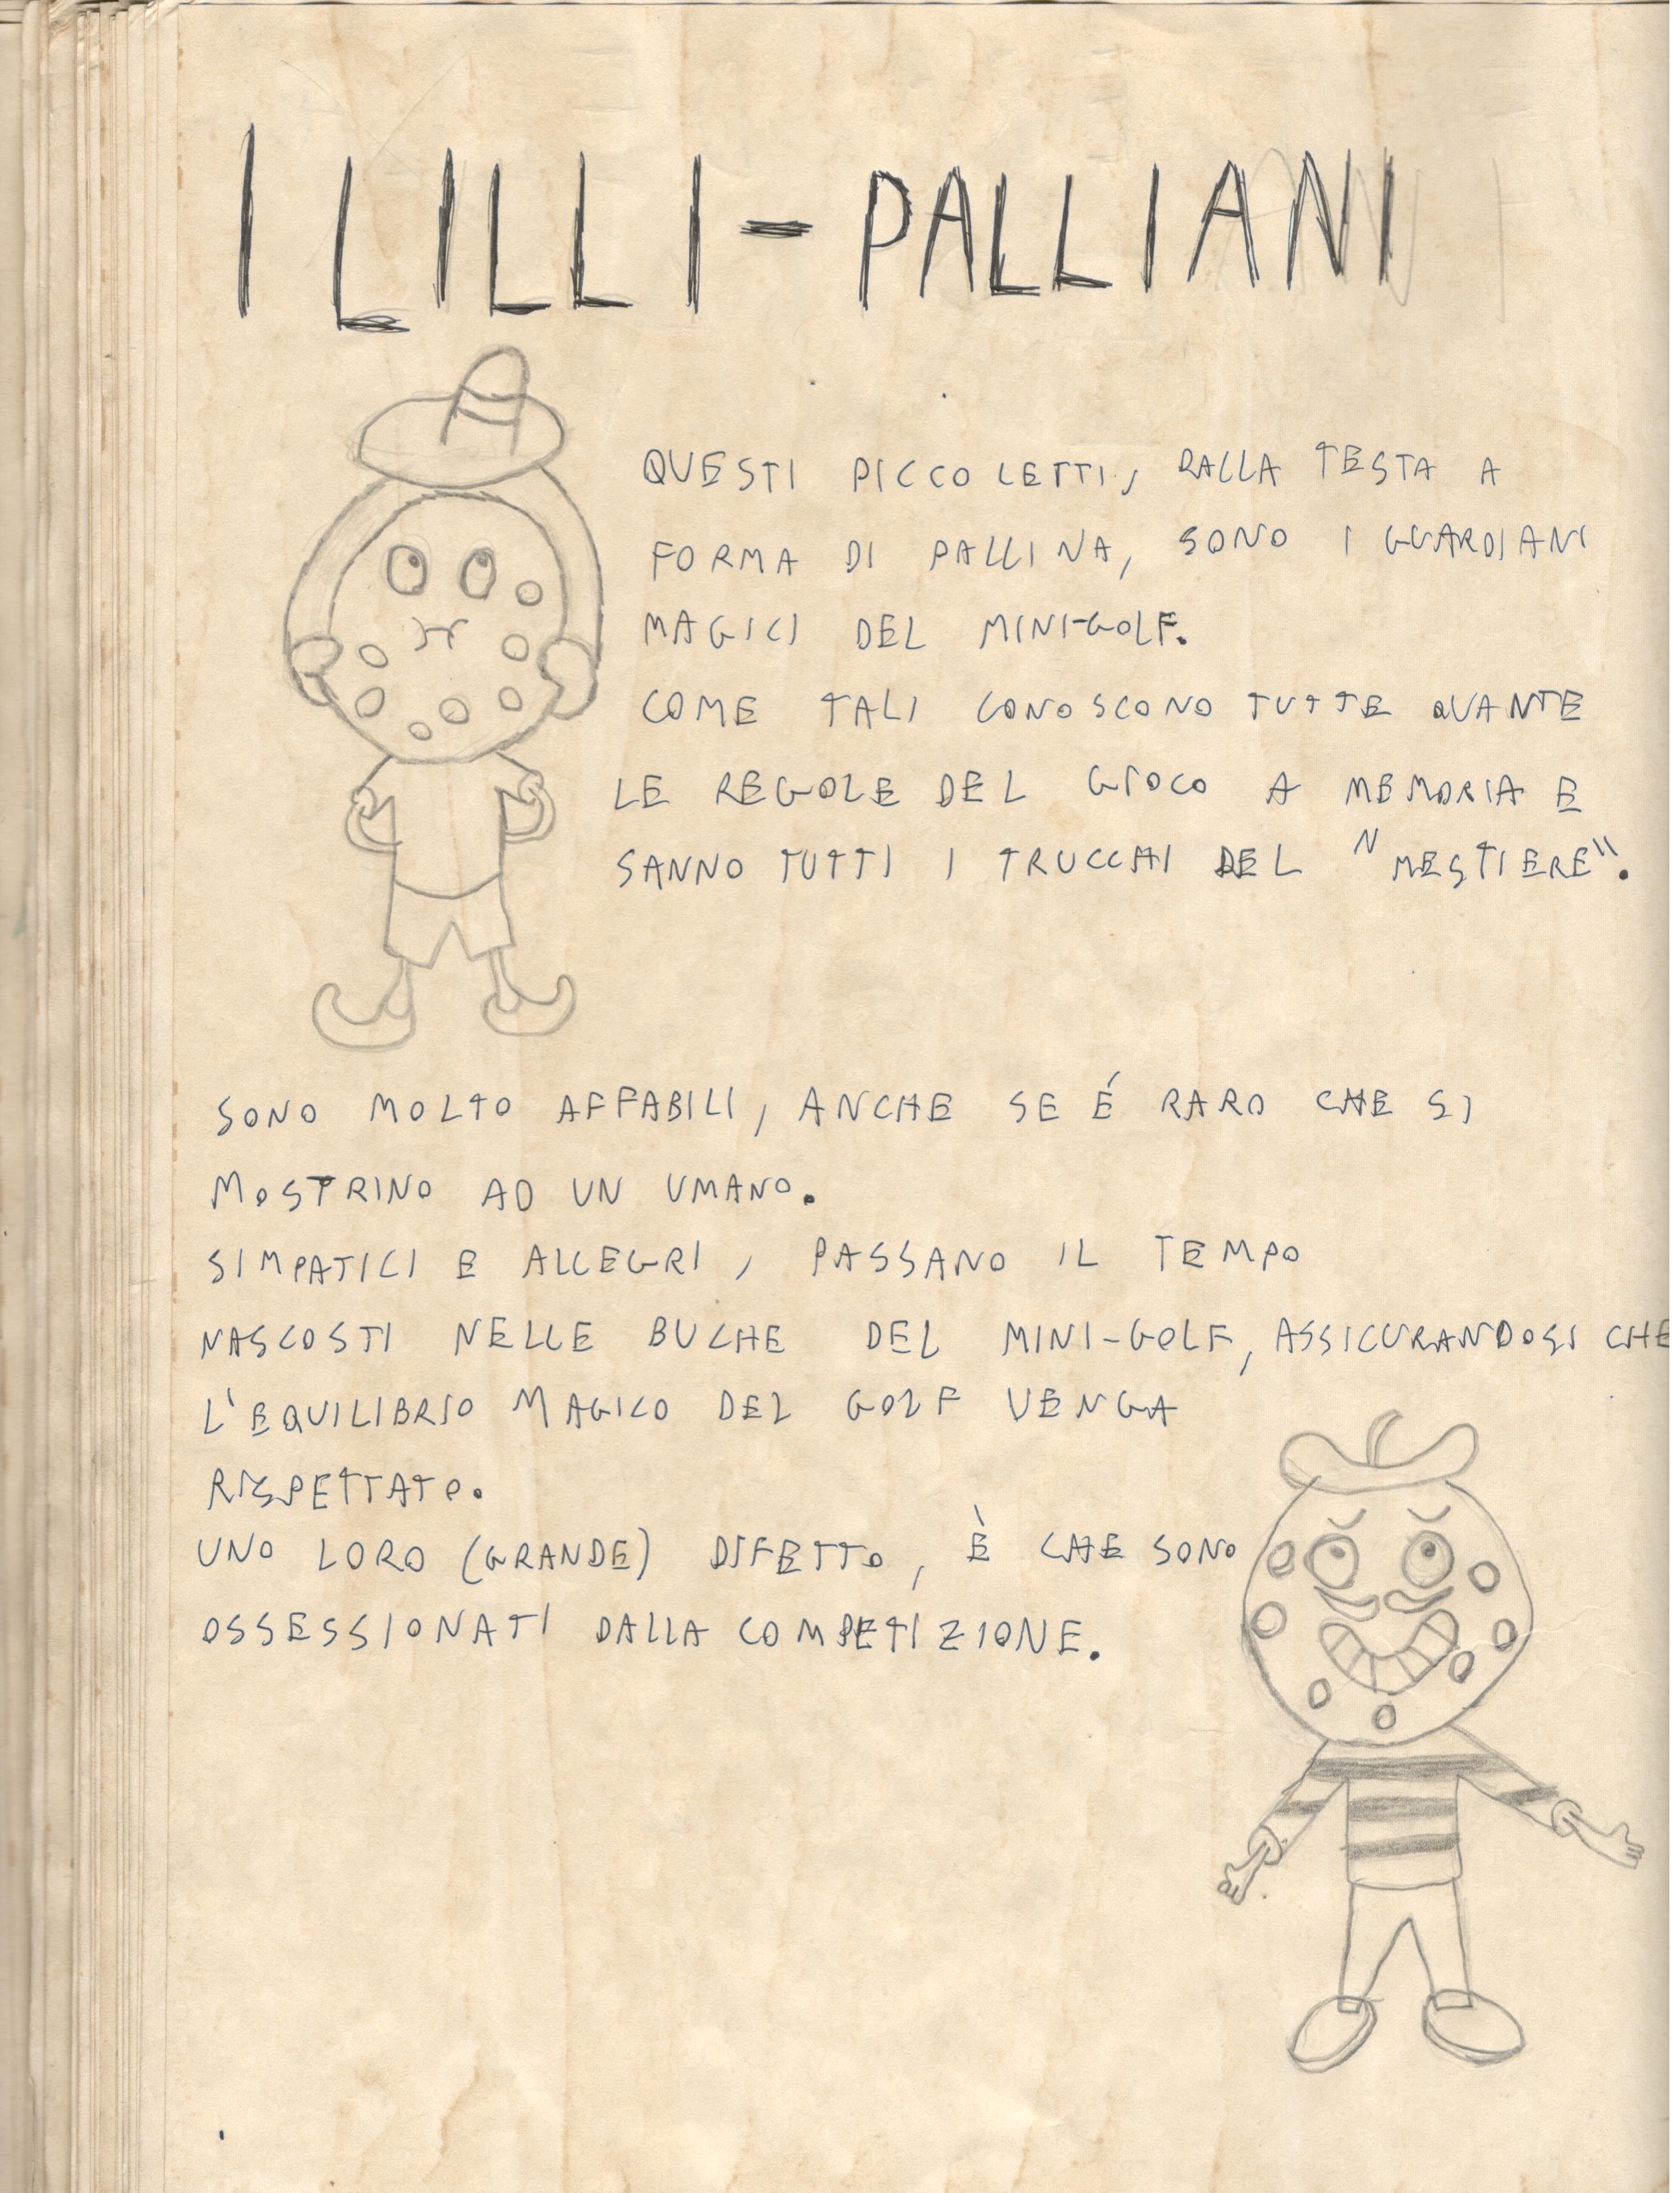 I LILLI-PALLIANI
QUESTI PICCOLETTI, DALLA TESTA A
FORMA DI PALLINA, SONO I GUARDIANI
MAGICI DEL MINI-GOLF.
COME TALI CONOSCONO TUTTE QUANTE
LE REGOLE DEL GIOCO A MEMORIA E
SANNO TUTTI I TRUCCHI DEL "MESTIERE".
SONO MOLTO AFFABILI, ANCHE SE É RARO CHE SI
MOSTRINO AD UN UMANO.
SIMPATICI E ALLEGRI, PASSANO IL TEMPO
NASCOSTI NELLE BUCHE DEL MINI-GOLF, ASSICURANDOSI CHE
L'EQUILIBRIO MAGICO DEL GOLF VENGA
RISPETTATO.
UNO LORO (GRANDE) DIFETTO, È CHE SONO
OSSESSIONATI DALLA COMPETIZIONE.